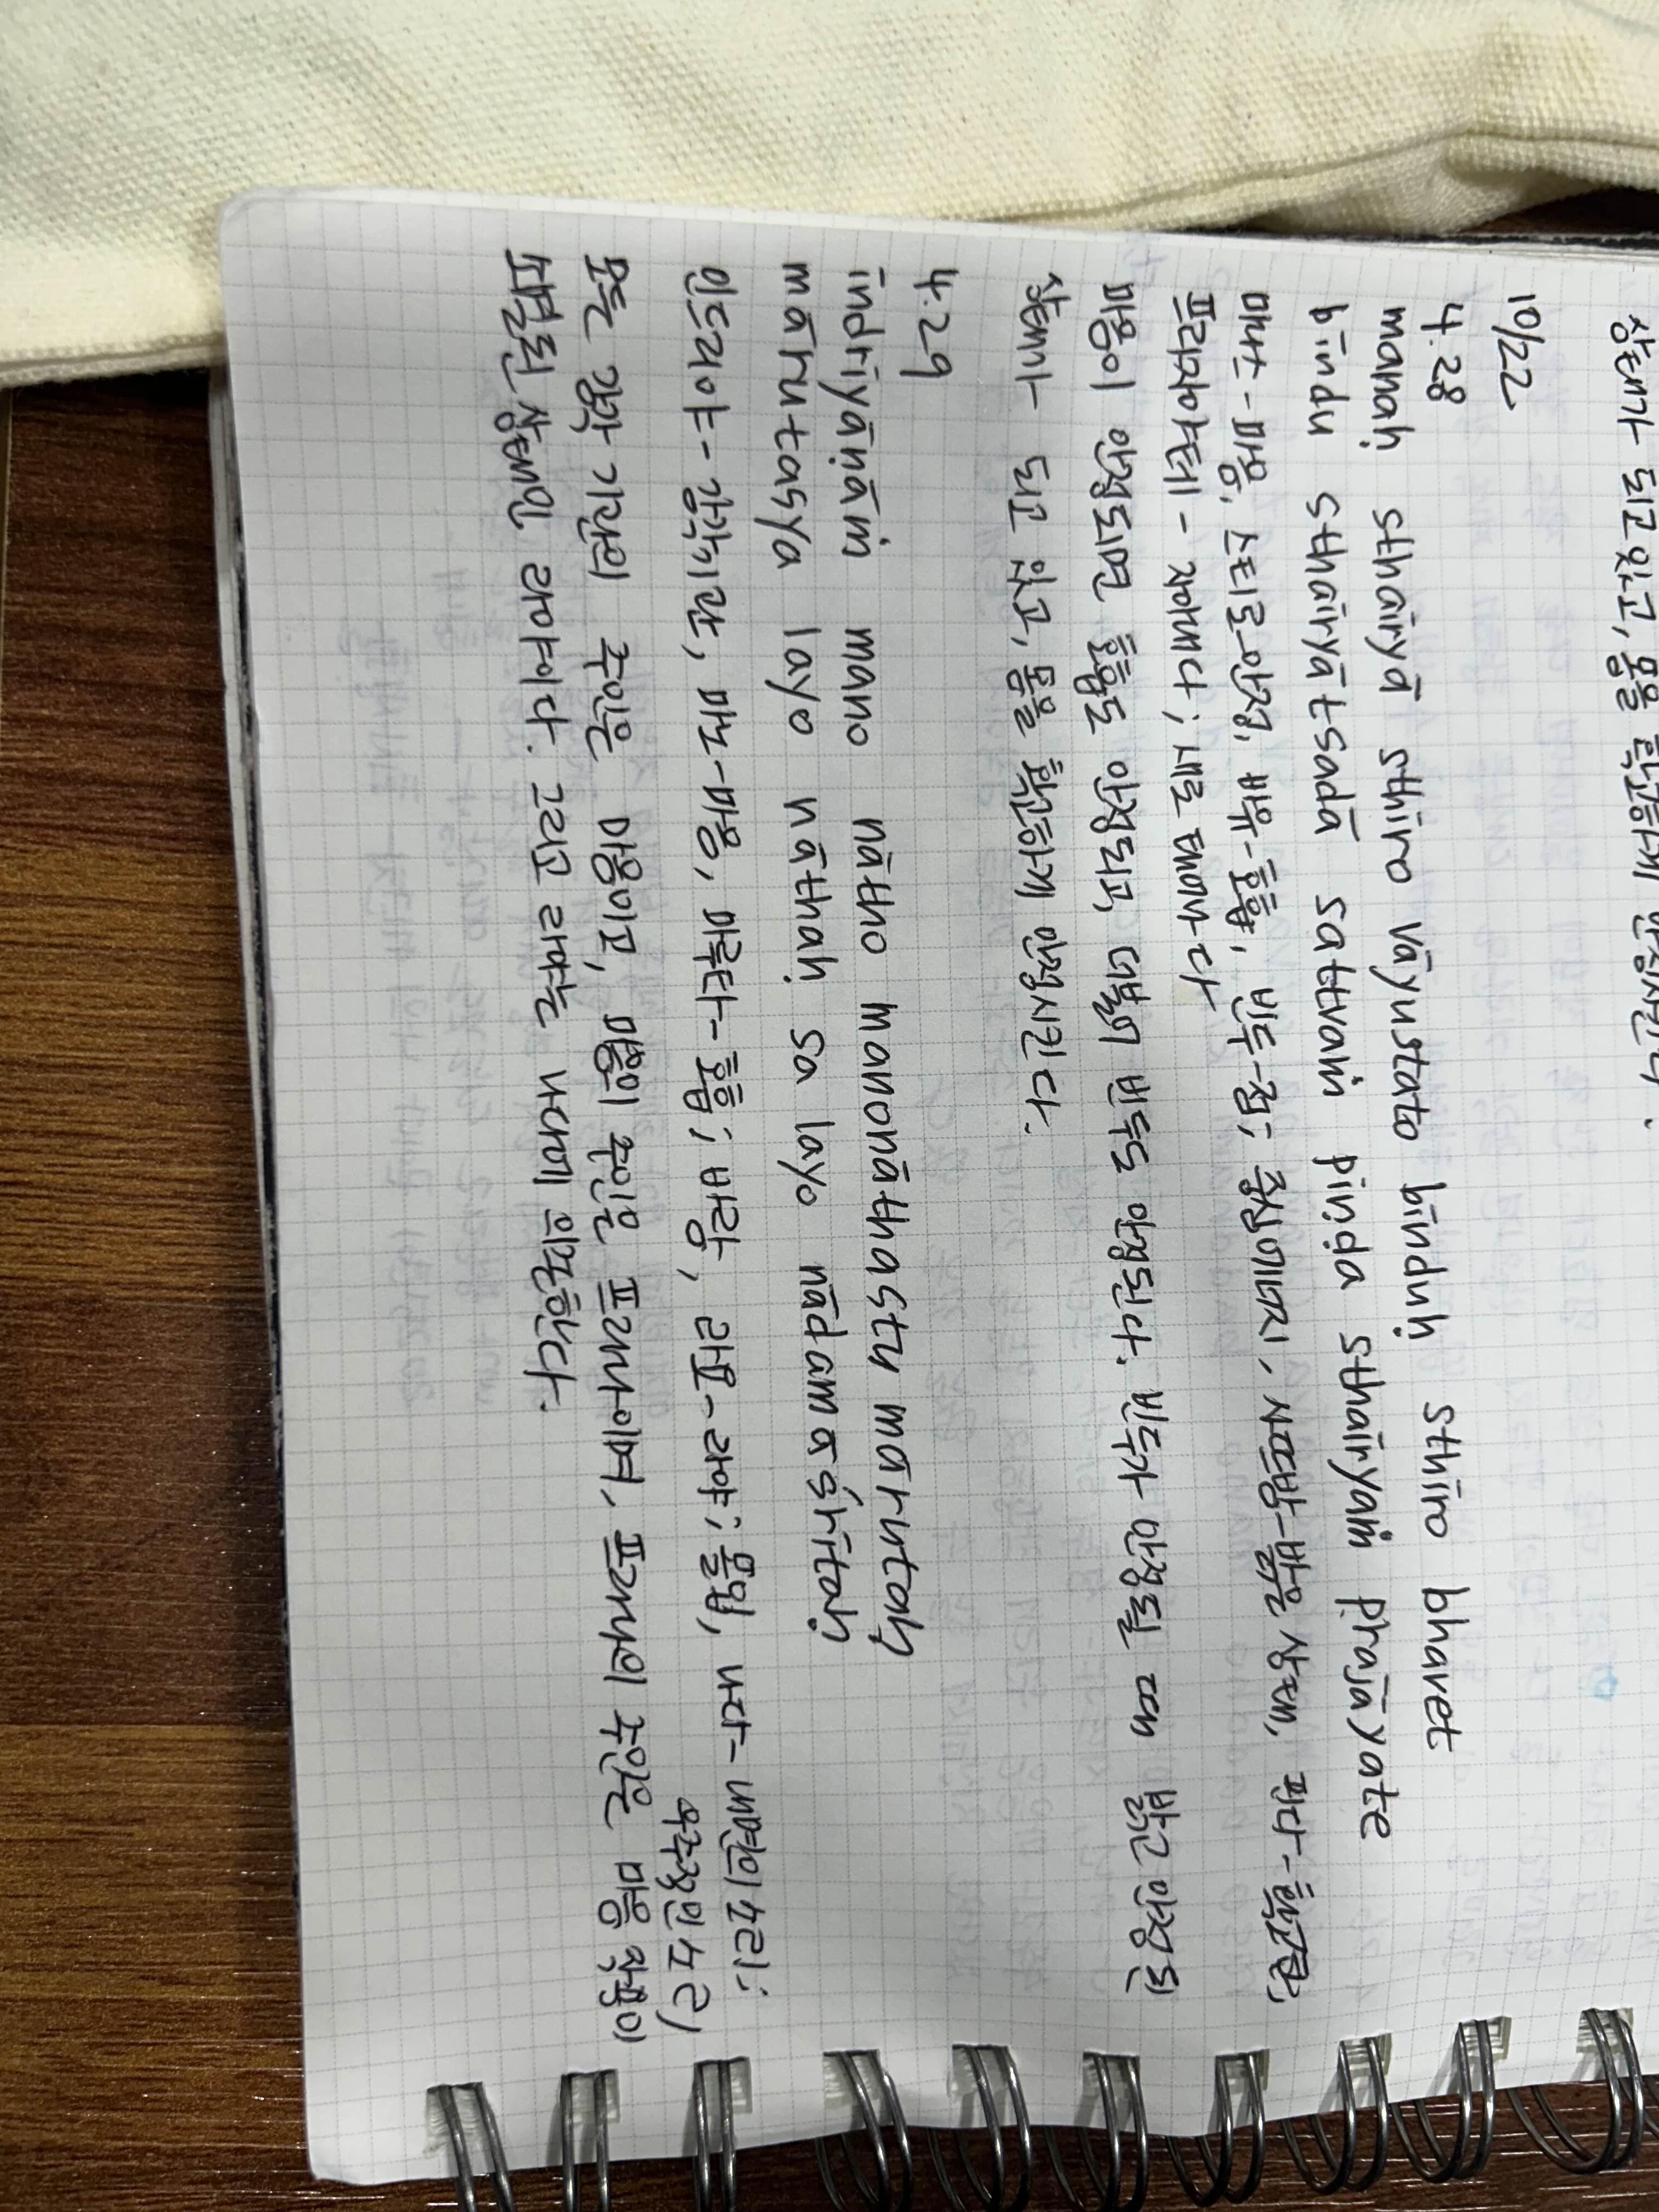 상태가 되고 있고, 몸을 확고하게 안정시킨다.
10/22
4.28
manaḥ sthairyā sthiro vāyustato binduḥ sthiro bhavet
bindu sthairyātsadā sattvaṁ piṇḍa sthairyaṁ prajāyate
마나스-마음, 스티로-안정, 바유-호흡, 빈두-점; 중심에너지, 사트밤-밝은 상태, 핀다-확고한,
프라자야테- 자아내다; 새로 태어나다
마음이 안정되면 호흡도 안정되고, 더불어 빈두도 안정된다. 빈두가 안정될 때 밝고 안정된
상태가 되고 있고, 몸을 확고하게 안정시킨다.
4.29
indriyāṇāṁ mano nātho manonāthastu mārutaḥ
mārutasya layo nāthaḥ sa layo nādamāśritaḥ
인드리야- 감각기관, 마노-마음, 마루타-호흡; 바람, 라요-라야; 몰입, 나다-내면의 소리;
우주적인 소리)
모든 감각 기관의 주인은 마음이고, 마음의 주인은 프라나이며, 프라나의 주인은 마음 작용이
소멸된 상태인 라야이다. 그리고 라야는 나다에 의존한다.